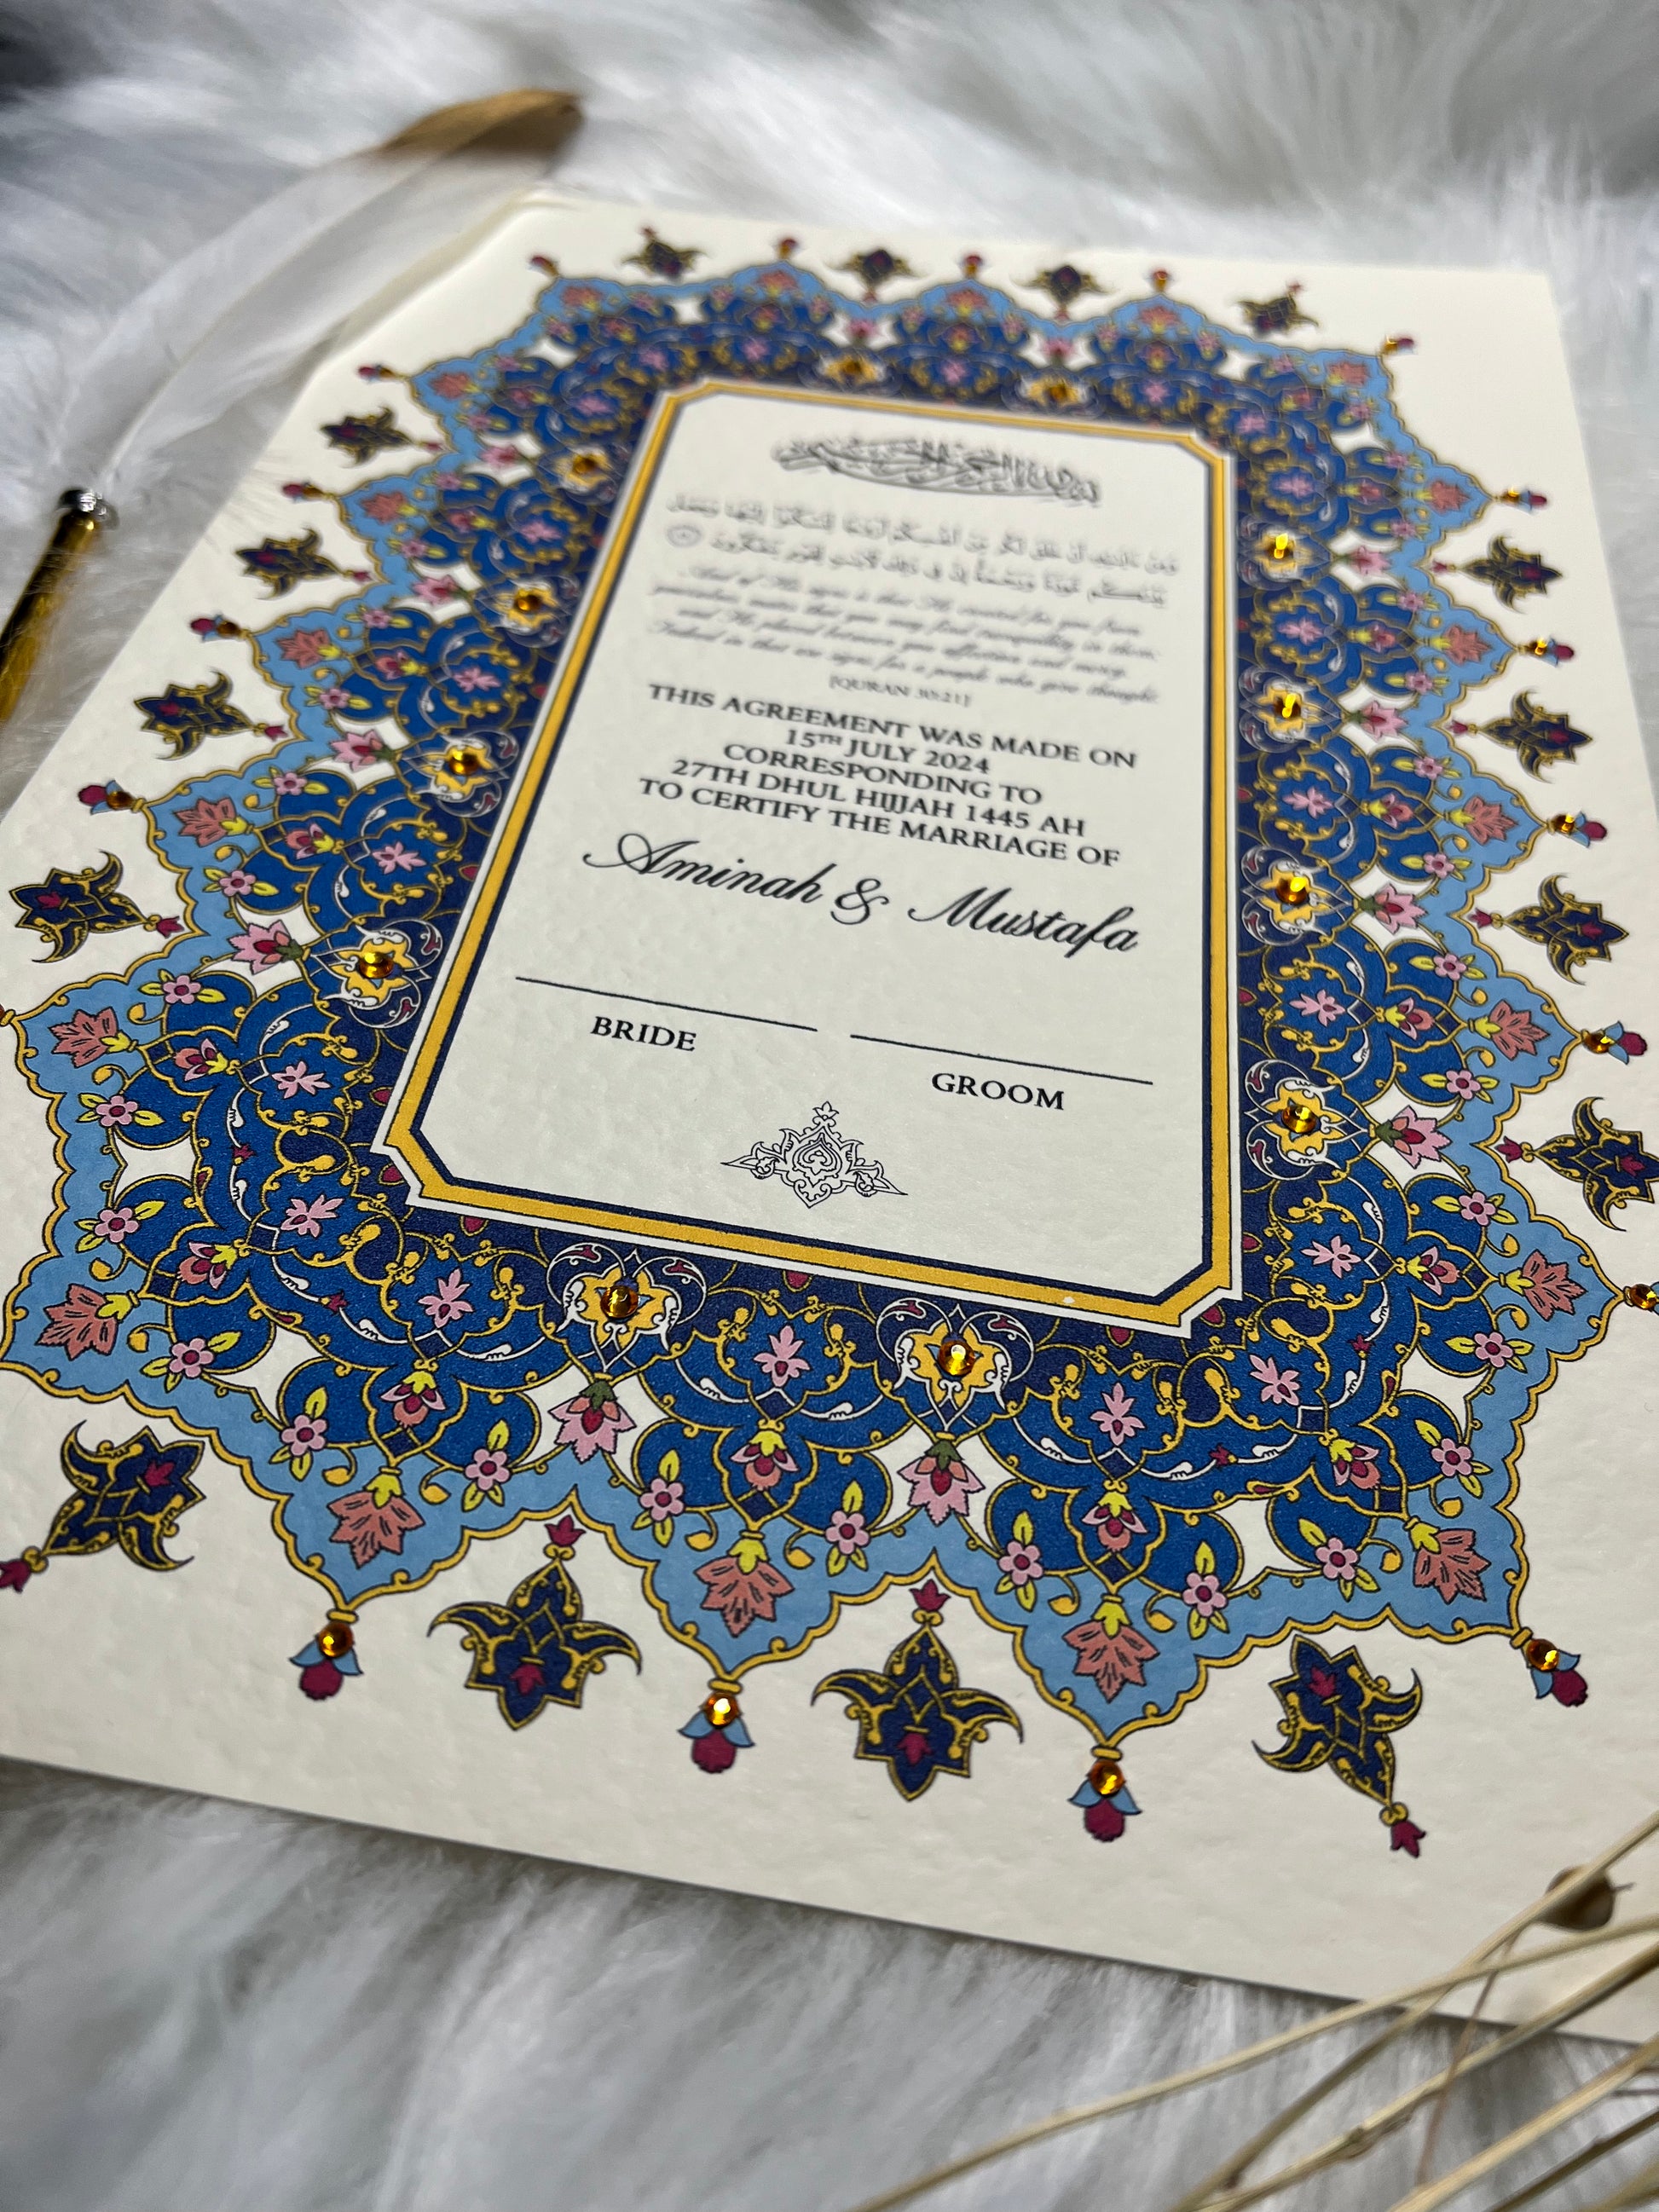 وَمِنْ ءَايَٰتِهِۦٓ أَنْ خَلَقَ لَكُم مِّنْ أَنفُسِكُمْ أَزْوَٰجًا لِّتَسْكُنُوٓا۟ إِلَيْهَا وَجَعَلَ
بَيْنَكُم مَّوَدَّةً وَرَحْمَةً إِنَّ فِى ذَٰلِكَ لَءَايَٰتٍ لِّقَوْمٍ يَتَفَكَّرُونَ
And of His signs is that He created for you from
yourselves mates that you may find tranquility in them;
and He placed between you affection and mercy.
Indeed in that are signs for a people who give thought.
[QURAN 30:21]
THIS AGREEMENT WAS MADE ON
15TH JULY 2024
CORRESPONDING TO
27TH DHUL HIJJAH 1445 AH
TO CERTIFY THE MARRIAGE OF
Aminah & Mustafa
BRIDE
GROOM